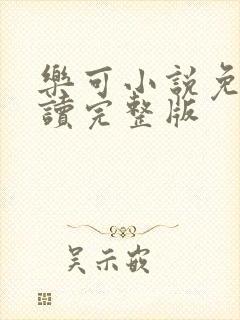 樂可小說免
讀完整版
吴示嵌